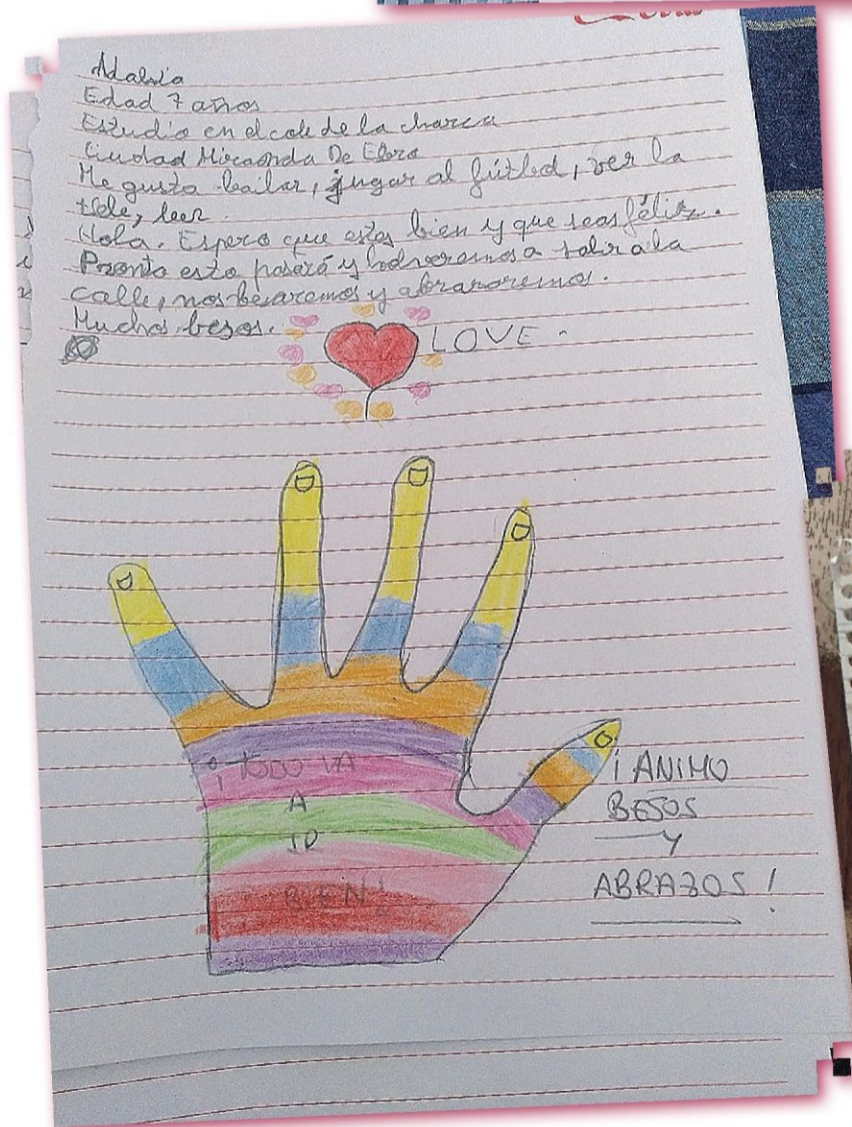 Adalia
Edad 7 años
Estudio en el cole de la charca
Ciudad Miraonda De Ebro
Me gusta bailar, jugar al fútbol, ver la
tele, leer.
Hola. Espero que estes bien y que seas féliz.
Pronto esto pasará y bolveremos a salir a la
calle, nos besaremos y abrazaremos.
Muchos besos.
LOVE -
¡TODO VA
A
IR
BIEN!
¡ANIMO
BESOS
Y
ABRAZOS!